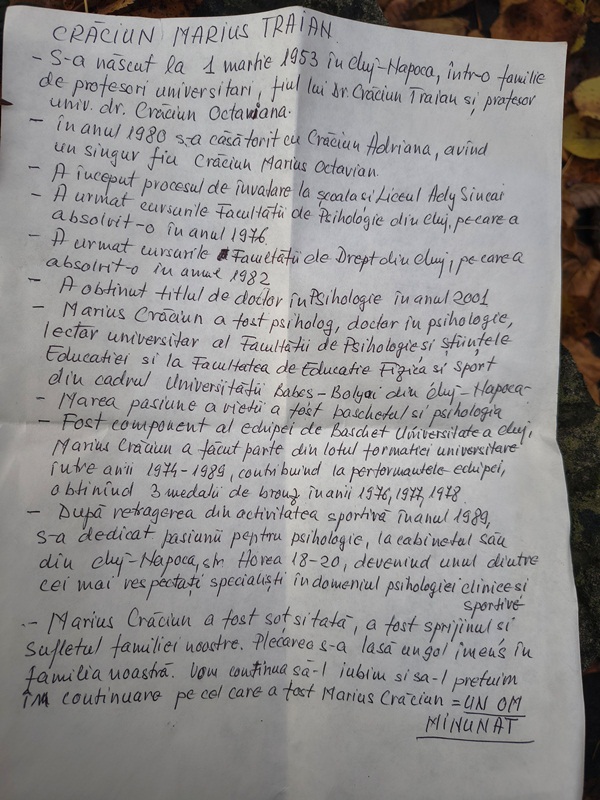 CRĂCIUN MARIUS TRAIAN
- S-a născut la 1 martie 1953 în Cluj-Napoca, într-o familie
de profesori universitari, fiul lui Dr. Crăciun Traian și profesor
univ. dr. Crăciun Octaviana.
- În anul 1980 s-a căsătorit cu Crăciun Adriana, avînd
un singur fiu Crăciun Marius Octavian
- A început procesul de învatare la școala si Liceul Ady Sincai
- A urmat cursurile Facultății de Psihologie din Cluj, pe care a
absolvit-o în anul 1976
- A urmat cursurile Facultății de Drept din Cluj, pe care a
absolvit-o în anul 1982
- A obtinut titlul de doctor în Psihologie în anul 2001
- Marius Crăciun a fost psiholog, doctor în psihologie,
lector universitar al Facultății de Psihologie si Științele
Educatiei si la Facultatea de Educatie Fizica si Sport
din cadrul Universității Babes-Bolyai din Cluj-Napoca-
- Marea pasiune a vietii a fost baschetul si psihologia
- Fost component al echipei de Baschet Universitatea Cluj,
Marius Crăciun a făcut parte din lotul formatiei universitare
între anii 1974-1989, contribuind la performantele echipei,
obtinînd 3 medalii de bronz în anii 1976, 1977, 1978
- După retragerea din activitatea sportivă în anul 1989,
s-a dedicat pasiunii pentru psihologie, la cabinetul său
din Cluj-Napoca, str Horea 18-20, devenind unul dintre
cei mai respectați specialiști în domeniul psihologiei clinice si
sportive
- Marius Crăciun a fost sot si tată, a fost sprijinul si
sufletul familiei noastre. Plecarea s-a lasă un gol imens în
familia noastră. Vom continua să-l iubim si sa-l pretuim
în continuare pe cel care a fost Marius Crăciun = UN OM
MINUNAT